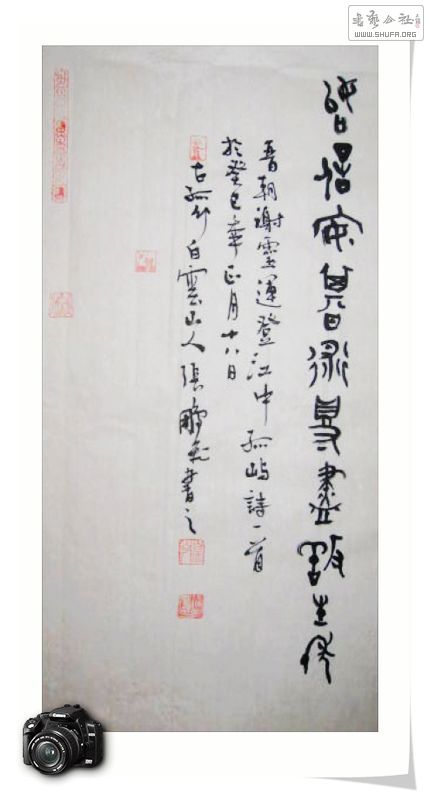 書藝公社
WWW.SHUFA.ORG
始信安期術得盡養生年
晉朝謝靈運登江中孤嶼詩一首
於癸巳年正月十八日
古孤竹白雲山人張鵬飛書之
Canon